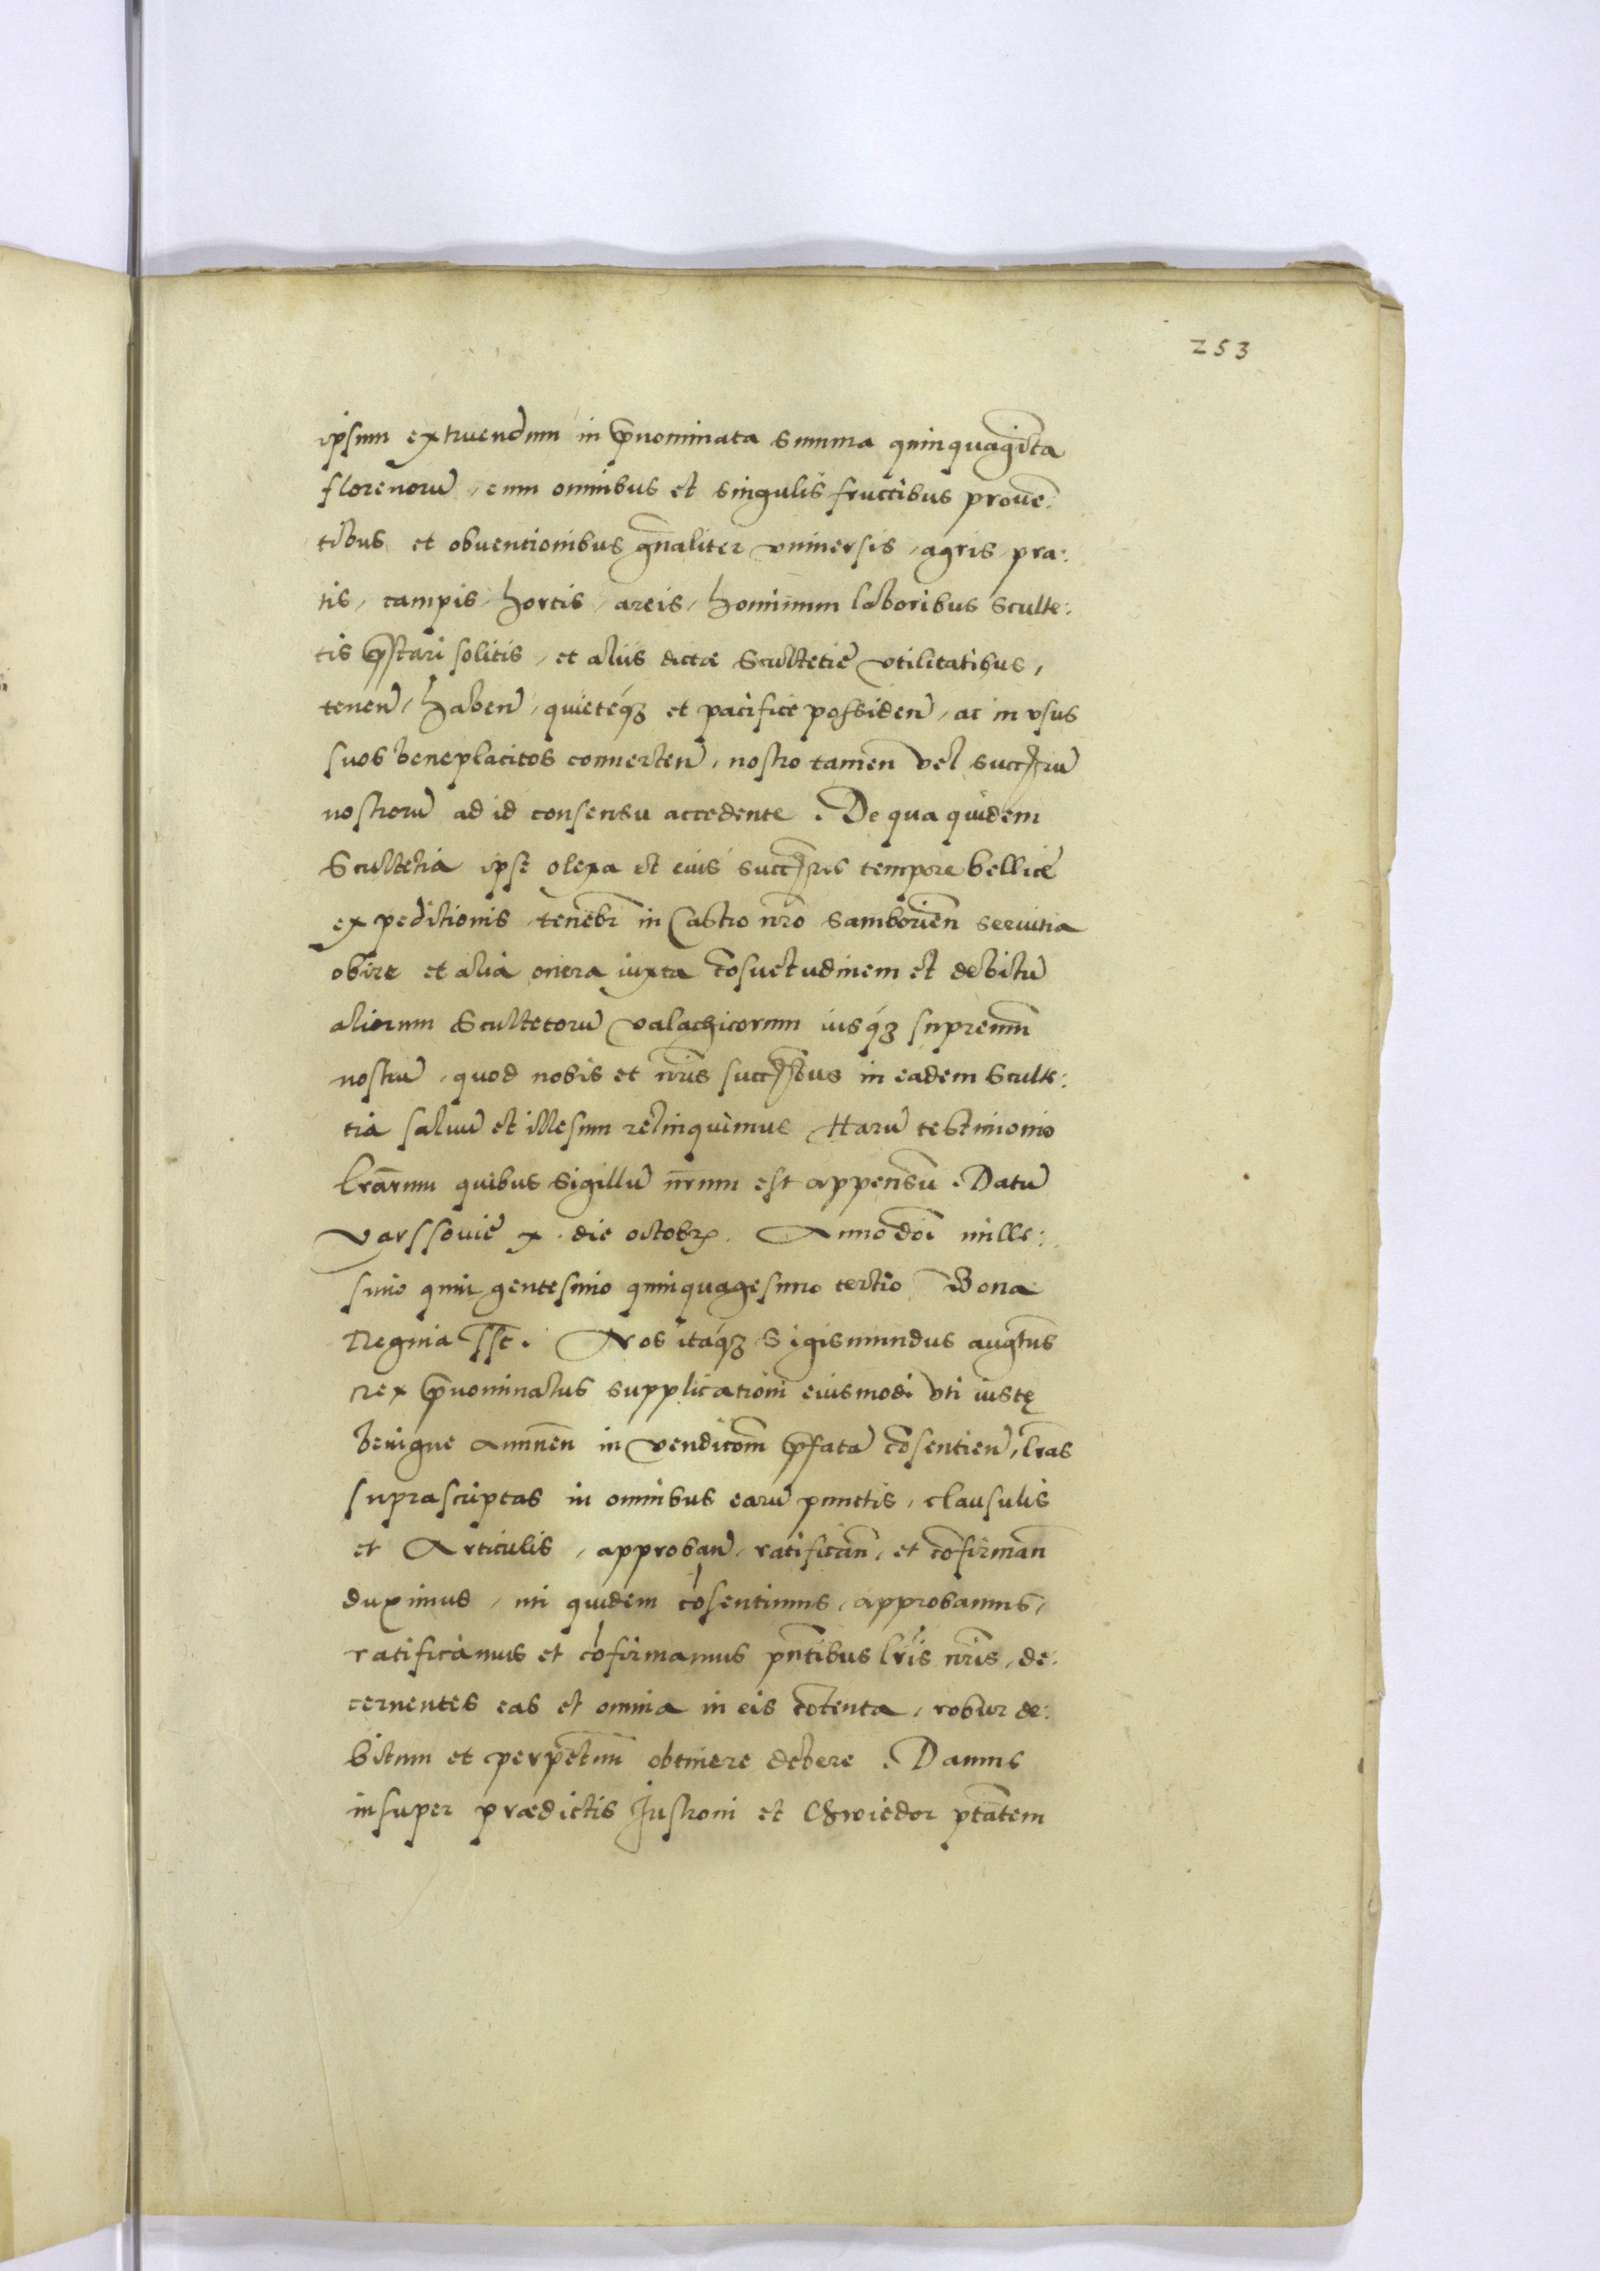 253
ipsum extruendum in p̄nominata summa quinquagīta
florenorū, cum omnibus et singulis fructibus prouē:
tibus et obuentionibus gn̄aliter vniuersis, agris, pra:
tis, campis, hortis, areis, hominum laboribus sculte:
tis p̄stari solitis, et aliis dictæ Scultetiæ vtilitatibus,
tenen̄, haben̄, quieteq́ꝫ et pacifice possiden̄, ac in vsus
suos beneplacitos conuerten̄, nostro tamen vel succ̄rū
nostrorū ad id consensu accedente. De qua quidem
Scultetia ipse olexa et eius succ̄res tempore bellicę
expeditionis tenebr̄ in Castro nr̄o Samborien̄ seruitia
obire et alia onera iuxta cōsuetudinem et debitū
aliorum Scultetorū valachicorum iusq́ꝫ supremū
nostrū, quod nobis et nr̄is succ̄ribus in eadem Sculte:
tia saluū et illesum relinquimus Harū testimonio
lr̄arum quibus Sigillū nr̄um est appensū. Datū
Varssouię x. die octobr̄. Anno dn̄i mille:
simo quingentesimo quinquagesimo tertio Bona
Regina sst. Nos itaq́ꝫ Sigismundus augt̄us
rex p̄nominatus supplicationi eiusmodi vti iustę
benigne annuen̄ in vendicōm p̄fatā cōsentien̄, lr̄as
suprascriptas in omnibus earū punctis, clausulis
et Articulis, approban̄, ratifican̄, et cōfirman̄
duximus, uti quidem cōsentimus, approbamus,
ratificamus et cōfirmamus pn̄tibus lr̄is nr̄is, de:
cernentes eas et omnia in eis cōtenta, robur de:
bitum et perpetuū obtinere debere. Damus
insuper prædictis Justroni et Chwiedor ptātem